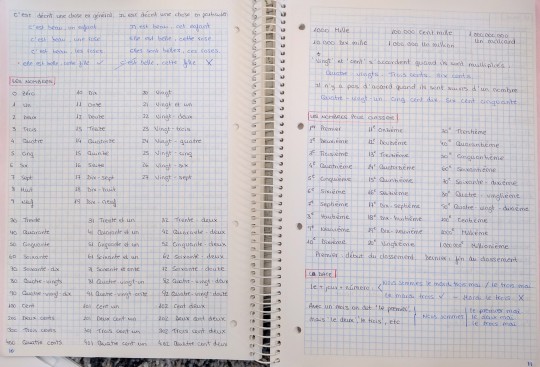 C'est décrit une chose en général. Il est décrit une chose en particulier
C'est beau, un enfant Il est beau, cet enfant
C'est beau, une rose Elle est belle, cette rose
C'est beau, les roses Elles sont belles, ces roses
C'est belle, cette fille X
LES NOMBRES
0 Zéro 10 Dix 20 Vingt
1 Un 11 Onze 21 Vingt et un
2 Deux 12 Douze 22 Vingt-deux
3 Trois 13 Treize 23 Vingt-trois
4 Quatre 14 Quatorze 24 Vingt-quatre
5 Cinq 15 Quinze 25 Vingt-cinq
6 Six 16 Seize 26 Vingt-six
7 Sept 17 Dix-sept 27 Vingt-sept
8 Huit 18 Dix-huit
9 Neuf 19 Dix-neuf
30 Trente 31 Trente et un 32 Trente-deux
40 Quarante 41 Quarante et un 42 Quarante-deux
50 Cinquante 51 Cinquante et un 52 Cinquante-deux
60 Soixante 61 Soixante et un 62 Soixante-deux
70 Soixante-dix 71 Soixante et onze 72 Soixante-douze
80 Quatre-vingts 81 Quatre-vingt-un 82 Quatre-vingt-deux
90 Quatre-vingt-dix 91 Quatre-vingt-onze 92 Quatre-vingt-douze
100 Cent 101 Cent un 102 Cent deux
200 Deux cents 201 Deux cent un 202 Deux cent deux
300 Trois cents 301 Trois cent un 302 Trois cent deux
400 Quatre cents 401 Quatre cent un 402 Quatre cent deux
1000 Mille 100.000 Cent mille 1.000.000.000
10.000 Dix mille 1.000.000 Un million Un milliard
Vingt et cent s'accordent quand ils sont multipliés
Quatre-vingts Trois cents Six cents
Il n'y a pas d'accord quand ils sont suivis d'un nombre
Quatre-vingt-un Cinq cent dix Six cent cinquante
LES NOMBRES POUR CLASSER
1er Premier 11e Onzième 30e Trentième
2e Deuxième 12e Douzième 40e Quarantième
3e Troisième 13e Treizième 50e Cinquantième
4e Quatrième 14e Quatorzième 60e Soixantième
5e Cinquième 15e Quinzième 70e Soixante-dixième
6e Sixième 16e Seizième 80e Quatre-vingtième
7e Septième 17e Dix-septième 90e Quatre-vingt-dixième
8e Huitième 18e Dix-huitième 100e Centième
9e Neuvième 19e Dix-neuvième 1000e Millième
10e Dixième 20e Vingtième Millionième
Premier: début du classement Dernier: fin du classement
LA DATE
Le + jour + numéro Nous sommes le mardi trois mai / Le trois mai
Le mardi trois ✓ Mardi le trois X
Avec un mois on dit "le premier", le premier mai
mais le deux, le trois, etc. Nous sommes le deux mai
le trois mai